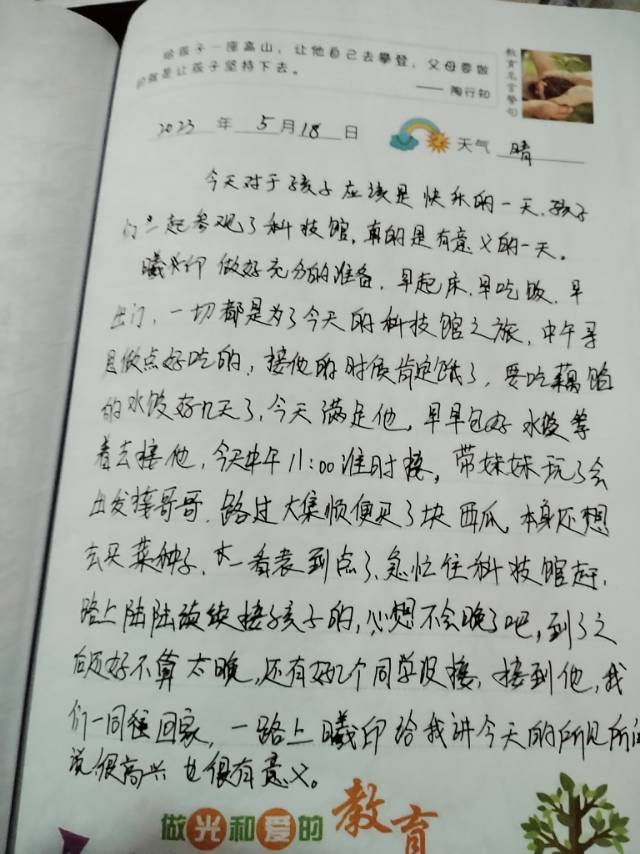 给孩子一座高山，让他自己去攀登，父母要做
的就是让孩子坚持下去。
—— 陶行知
教育名言警句
2023 年 5 月 18 日
天气 晴
今天对于孩子应该是快乐的一天，孩子
们一起参观了科技馆，真的是有意义的一天。
曦印做好充分的准备，早起床，早吃饭，早
出门，一切都是为了今天的科技馆之旅，中午寻
思做点好吃的，接他的时候肯定饿了，要吃藕馅
的水饺好几天了，今天满足他，早早包好水饺等
着去接他，今天中午11:00准时接，带妹妹玩了会
出发接哥哥，路过大集顺便买了块西瓜，本身还想
去买菜种子，一看表到点了，急忙往科技馆赶，
路上陆陆续续接孩子的，心想不会晚了吧，到了之
后还好不算太晚，还有好几个同学没接，接到他，我
们一同往回家，一路上曦印给我讲今天的所见所
说很高兴也很有意义。
做光和爱的教育